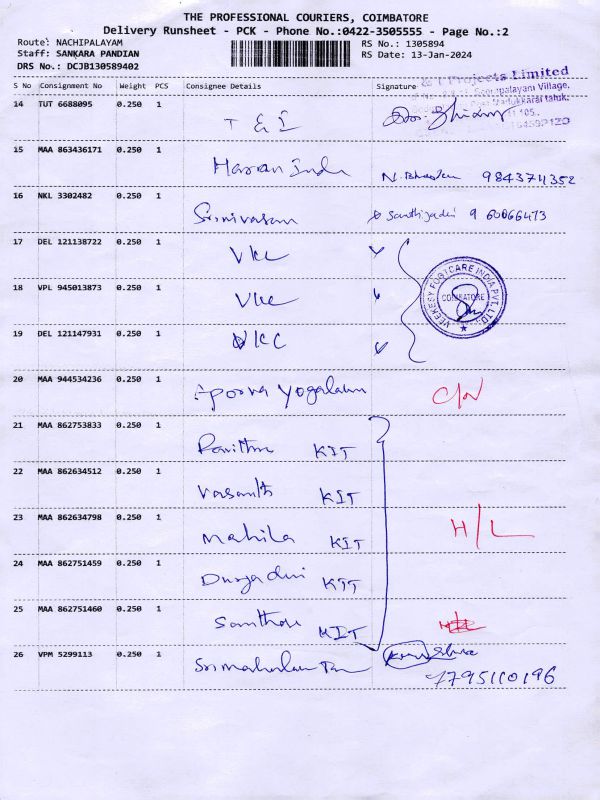 THE PROFESSIONAL COURIERS, COIMBATORE
Delivery Runsheet - PCK - Phone No.:0422-3505555 - Page No.:2
Route: NACHIPALAYAM RS No.: 1305894
Staff: SANKARA PANDIAN RS Date: 13-Jan-2024
DRS No.: DCJB130589402
& T Projects Limited
S No Consignment No Weight PCS Consignee Details Signature
14 TUT 6688095 0.250 1 T & I
15 MAA 863436171 0.250 1 Haran Indu
16 NKL 3302482 0.250 1 Srinivasan
17 DEL 121138722 0.250 1 VKC
18 VPL 945013873 0.250 1 VKC
VEEKESY FOOTCARE INDIA PVT. LTD.
COIMBATORE
19 DEL 121147931 0.250 1 VKC
20 MAA 944534236 0.250 1 C/N
21 MAA 862753833 0.250 1 KIT
22 MAA 862634512 0.250 1 Vasanth KIT
23 MAA 862634798 0.250 1 Mahila KIT H/L
24 MAA 862751459 0.250 1 Durgadevi KIT
25 MAA 862751460 0.250 1 KIT
26 VPM 5299113 0.250 1
7795110196